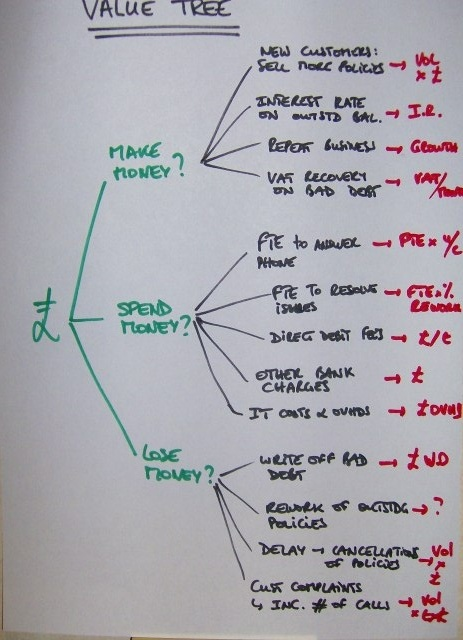 VALUE TREE
NEW CUSTOMERS:
SELL MORE POLICIES → VOL
x £
INTEREST RATE
ON OUTSTD BAL. → I.R.
MAKE
MONEY?
REPEAT BUSINESS → GROWTH
VAT RECOVERY
ON BAD DEBT → VAT/
FTE TO ANSWER
PHONE → FTE x
£
SPEND
MONEY?
FTE TO RESOLVE
ISSUES → FTE x %
REWORK
DIRECT DEBIT FEES → £/t
OTHER BANK
CHARGES → £
IT COSTS & OVHDS → £OVHDS
LOSE
MONEY?
WRITE OFF BAD
DEBT → £ W.O
REWORK OF OUTSTDG → ?
POLICIES
DELAY → CANCELLATION
OF POLICIES → VOL
x
£
CUST COMPLAINTS
↳ INC. # OF CALLS → VOL